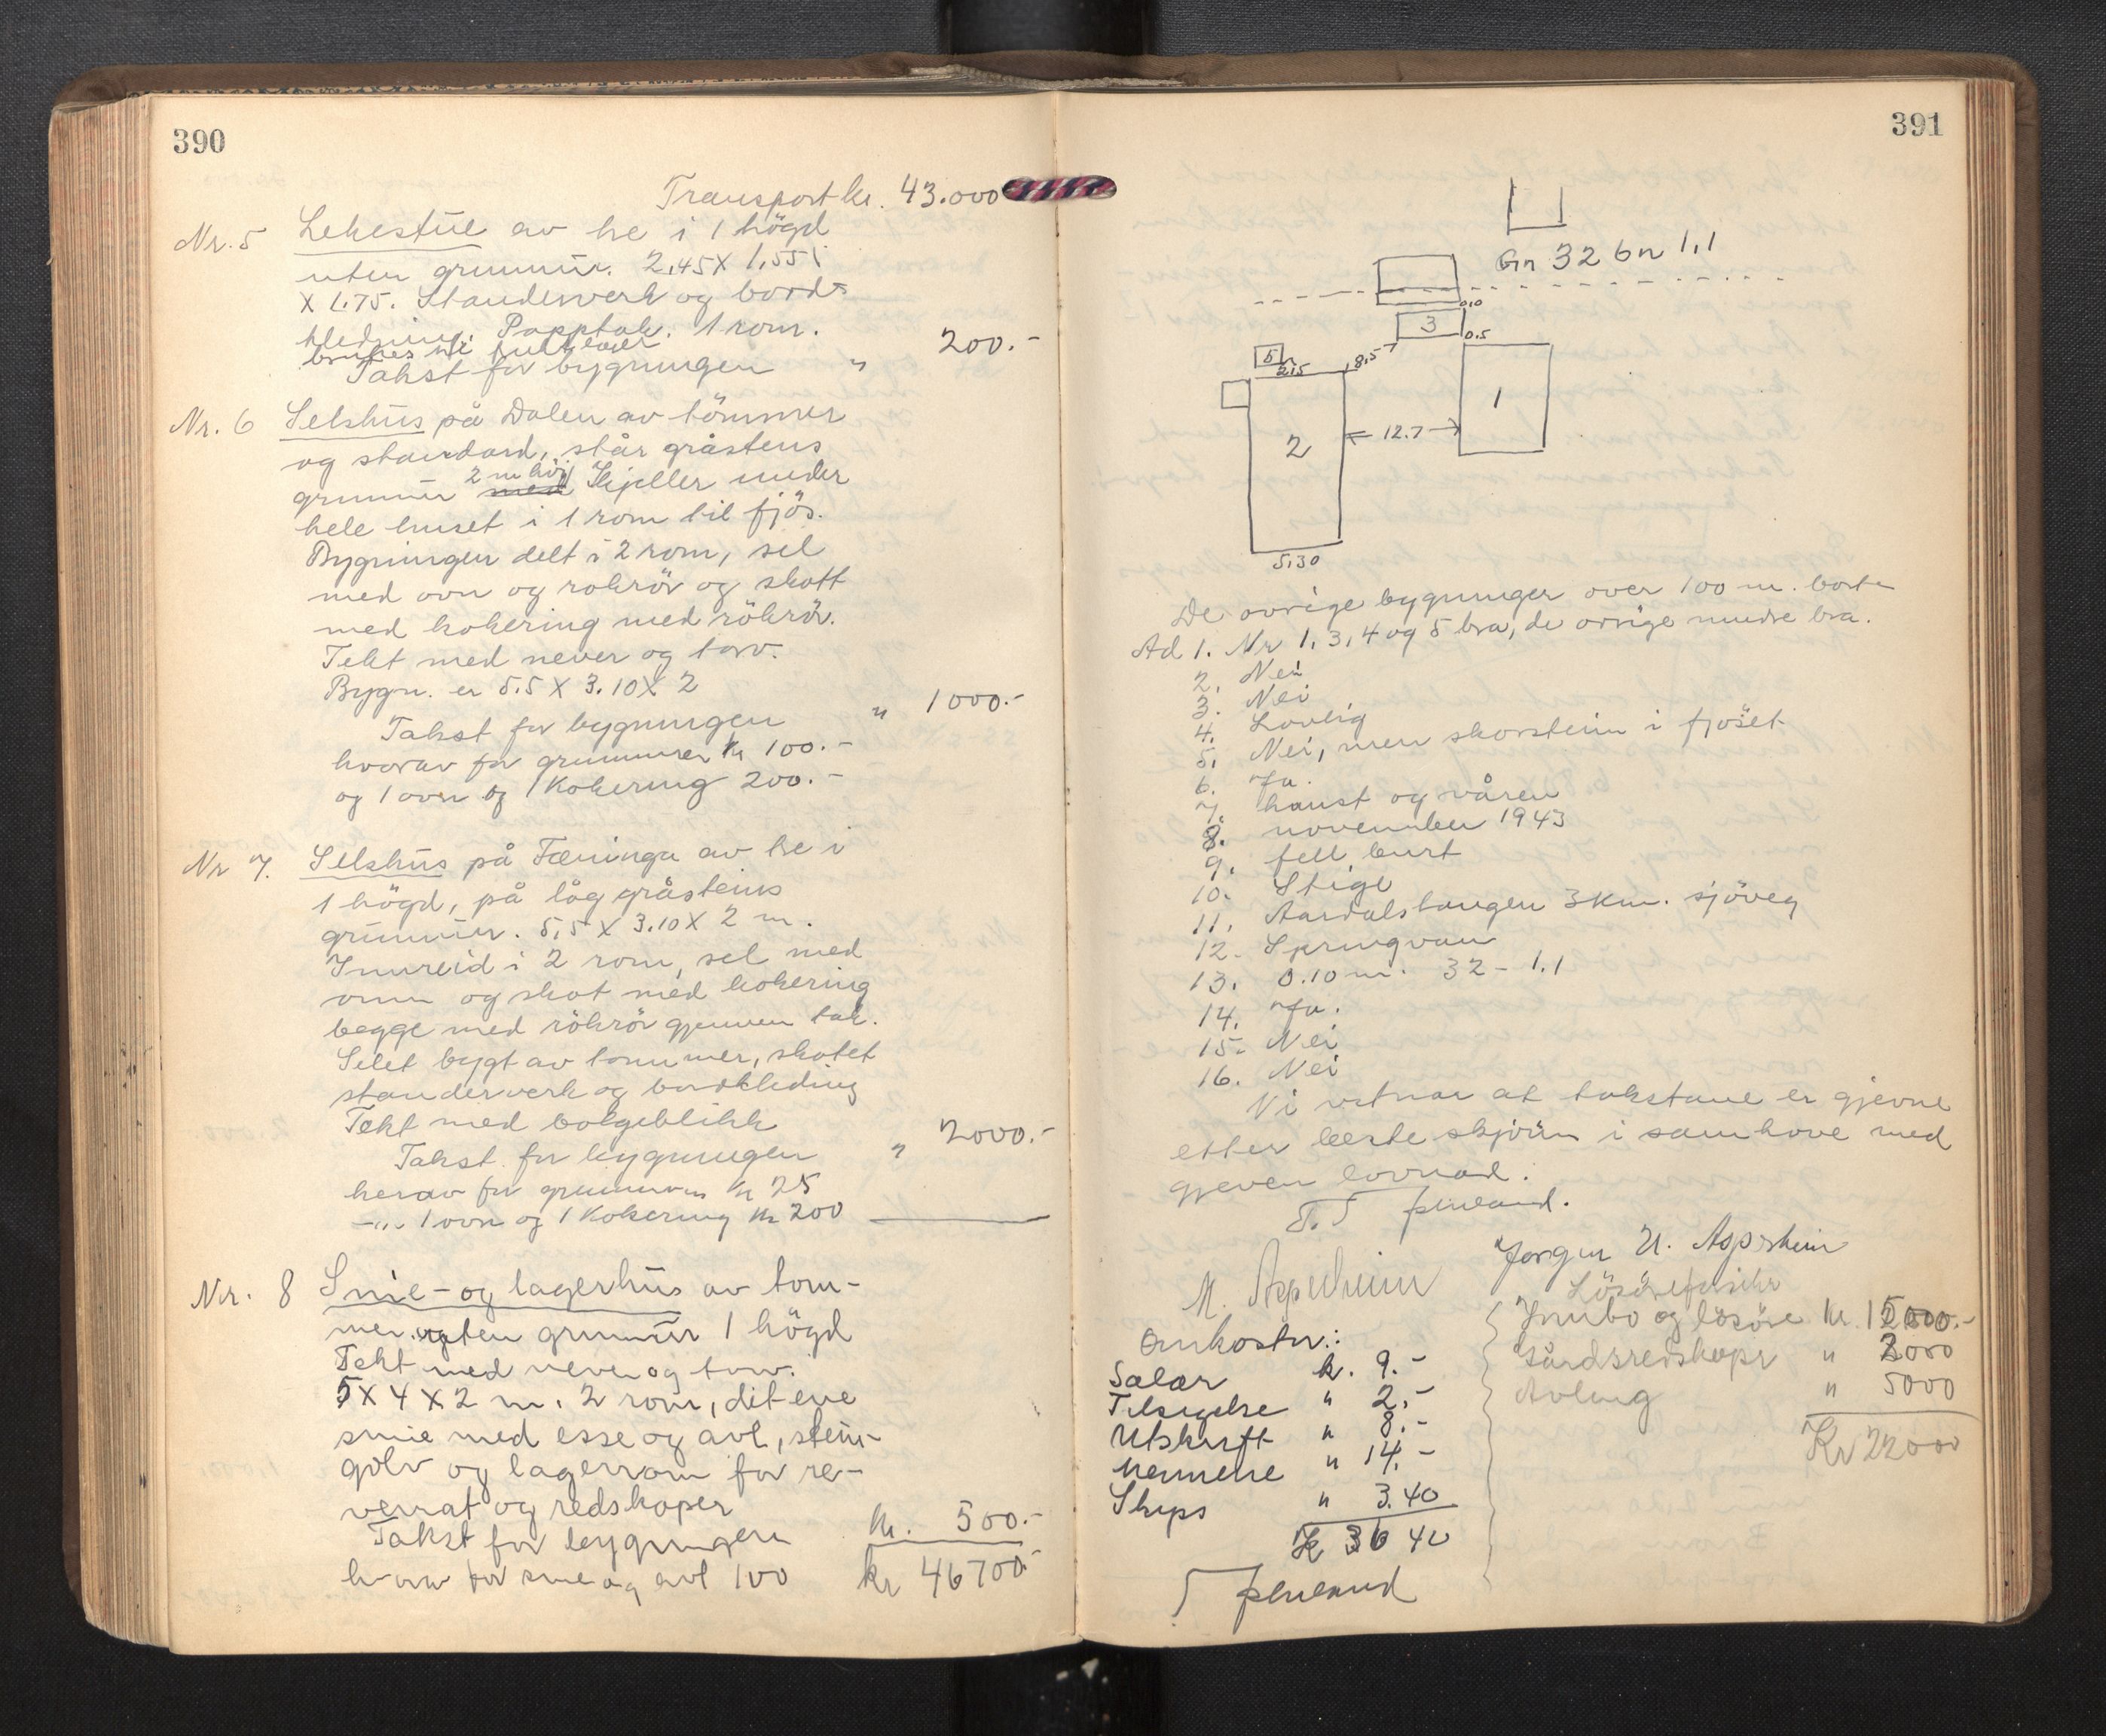 390
Transport kr. 43.000
Nr. 5 Lekestue av tre i 1 högd
uten grunnmur. 2,45 X 1,55
X 1.75. Standerverk og bord-
kledning. Papptak. 1 rom.
brukes til
Takst for bygningen " 200.-
Nr. 6 Selshus på Dalen av tömmer
og standard, står gråsteins
grunnmur 2 m höi med Kjeller under
hele huset i 1 rom til fjös.
Bygningen delt i 2 rom, sel
med ovn og rökrör og skott
med kokering med rökrör.
Tekt med never og torv.
Bygn. er 5.5 X 3.10 X 2
Takst for bygningen " 1000.-
hvorav for grunnmur kr 100.-
og 1 ovn og 1 Kokering 200.-
Nr 7. Selshus på Fæninga av tre i
1 högd, på låg gråsteins
grunnmur. 5,5 X 3.10 X 2 m.
Innreid i 2 rom, sel med
omn og skot med kokering
begge med rökrör gjennem tak.
Selet bygt av tömmer, skotet
standerverk og bordkleding
Tekt med bölgeblikk
Takst for bygningen " 2000.-
herav for grunnmur kr 25
-"- 1 ovn og 1 Kokering kr 200
Nr. 8 Smie- og lagerhus av töm-
mer. uten grunnmur 1 högd
Tekt med never og torv.
5 X 4 X 2 m. 2 rom, det ene
smie med esse og avl, stein-
golv og lagerrom for re-
verrat og redskaper
Takst for bygningen kr. 500.-
hvorav for smie og avl 100 kr 46700.-
391
Gn 32 bn 1,1
0,0
3
0.5
5
2,5
8,5
1
2
12.7
5,30
De övrige bygninger over 100 m. borte
Ad 1. Nr 1, 3, 4 og 5 bra, de övrige mindre bra.
2. Nei
3. Nei
4. Lovlig
5. Nei, men skorstein i fjöset
6. Ja.
7. haust og våren
8. november 1943
9. fell burt
10. Stige
11. Aardalstangen 3 km. sjöveg
12. Springvan
13. 0.10 m. 32 - 1.1
14. Ja.
15. Nei
16. Nei
Vi vitnar at takstane er gjevne
etter beste skjön i samhöve med
gjeven lovnad.
Jörgen N. Asperheim
M. Asperheim
Omkostn.:
Salær k. 9.-
Tilsigelse " 2.-
Utskrift " 8.-
Mennene " 14.-
Skyss " 3.40
K 36 40
Innbo og lösöre kr. 15000.-
Gårdsredskapr " 2000
Avling " 5000
Kr 22000